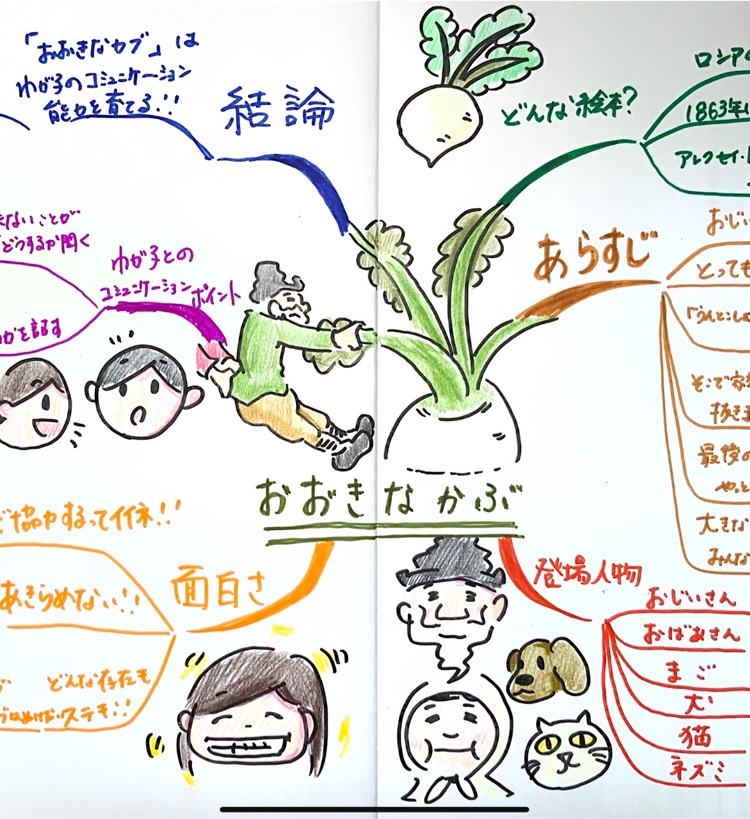 おおきなかぶ
どんな絵本?
ロシアの
1863年
アレクセイ・
あらすじ
おじい
とっても
「うんとこしょ
そこで家
抜きま
最後の
やっと
大きな
みんな
登場人物
おじいさん
おばあさん
まご
犬
猫
ネズミ
面白さ
協力するってイイネ!!
あきらめない!!
どんな存在も
ステキ!!
わが子との
コミュニケーションポイント
ないことが
どうするか聞く
を話す
結論
「おおきなカブ」は
わが子のコミュニケーション
能力を育てる!!